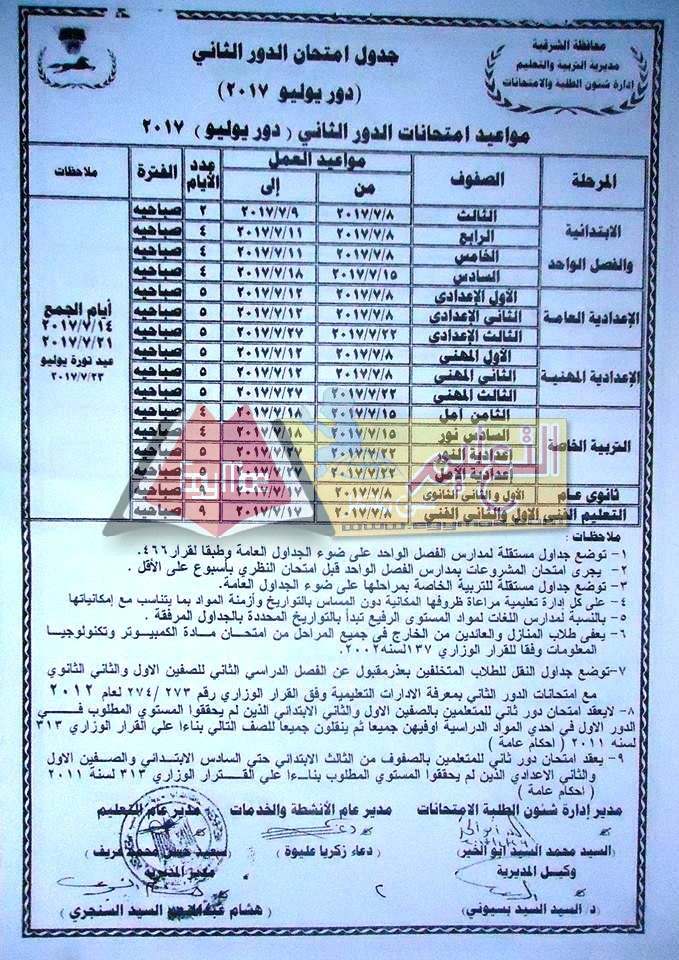 محافظة الشرقية
مديرية التربية والتعليم
إدارة شئون الطلبة والامتحانات
جدول امتحان الدور الثاني
(دور يوليو ٢٠١٧)
مواعيد امتحانات الدور الثاني ( دور يوليو ) ٢٠١٧
المرحلة الصفوف مواعيد العمل عدد الأيام الفترة ملاحظات
من إلى
الابتدائية والفصل الواحد
الثالث ٢٠١٧/٧/٨ ٢٠١٧/٧/٩ ٢ صباحيه
الرابع ٢٠١٧/٧/٨ ٢٠١٧/٧/١١ ٤ صباحيه
الخامس ٢٠١٧/٧/٨ ٢٠١٧/٧/١١ ٤ صباحيه
السادس ٢٠١٧/٧/١٥ ٢٠١٧/٧/١٨ ٤ صباحيه
الإعدادية العامة
الأول الإعدادى ٢٠١٧/٧/٨ ٢٠١٧/٧/١٢ ٥ صباحيه
الثانى الإعدادى ٢٠١٧/٧/٨ ٢٠١٧/٧/١٢ ٥ صباحيه
الثالث الإعدادى ٢٠١٧/٧/٢٢ ٢٠١٧/٧/٢٧ ٥ صباحيه
الإعدادية المهنية
الأول المهنى ٢٠١٧/٧/٨ ٢٠١٧/٧/١٢ ٥ صباحيه
الثانى المهنى ٢٠١٧/٧/٨ ٢٠١٧/٧/١٢ ٥ صباحيه
الثالث المهنى ٢٠١٧/٧/٢٢ ٢٠١٧/٧/٢٧ ٥ صباحيه
التربية الخاصة
الثامن أمل ٢٠١٧/٧/١٥ ٢٠١٧/٧/١٨ ٤ صباحيه
السادس نور ٢٠١٧/٧/١٥ ٢٠١٧/٧/١٨ ٤ صباحيه
إعدادية النور ٢٠١٧/٧/٢٢ ٢٠١٧/٧/٢٧ ٥ صباحيه
إعدادية الأمل ٢٠١٧/٧/٢٢ ٢٠١٧/٧/٢٧ ٥ صباحيه
ثانوي عام الأول و الثانى الثانوى ٢٠١٧/٧/٨ ٢٠١٧/٧/١٧ صباحيه
التعليم الفنى الاول والثاني الفني ٢٠١٧/٧/٨ ٢٠١٧/٧/١٧ ٩ صباحيه
أيام الجمع
٢٠١٧/٧/١٤
٢٠١٧/٧/٢١
عيد ثورة يوليو
٢٠١٧/٧/٢٣
ملاحظات :
١- توضع جداول مستقلة لمدارس الفصل الواحد على ضوء الجداول العامة وطبقا لقرار٤٦٦.
٢- يجرى امتحان المشروعات بمدارس الفصل الواحد قبل امتحان النظري بأسبوع على الأقل .
٣- توضع جداول مستقلة للتربية الخاصة بمراحلها على ضوء الجداول العامة.
٤- على كل إدارة تعليمية مراعاة ظروفها المكانية دون المساس بالتواريخ وأزمنة المواد بما يتناسب مع إمكانياتها
٥- بالنسبة لمدارس اللغات لمواد المستوى الرفيع تبدأ بالتواريخ المحددة بالجداول المرفقة .
٦- يعفى طلاب المنازل والعائدين من الخارج في جميع المراحل من امتحان مادة الكمبيوتر وتكنولوجيا
المعلومات وفقا للقرار الوزاري ١٣٧ لسنه٢٠٠٢.
٧-توضع جداول النقل للطلاب المتخلفين بعذرمقبول عن الفصل الدراسي الثاني للصفين الاول والثاني الثانوي
مع امتحانات الدور الثاني بمعرفة الادارات التعليمية وفق القرار الوزاري رقم ٢٧٣ /٢٧٤ لعام ٢٠١٢
٨-لايعقد امتحان دور ثاني للمتعلمين بالصفين الاول والثاني الابتدائي الذين لم يحققوا المستوي المطلوب في
الدور الاول في احدي المواد الدراسية أوفيهن جميعا ثم ينقلون جميعا للصف التالي بناءا علي القرار الوزاري ٣١٣
لسنة ٢٠١١ ( أحكام عامة )
٩- يعقد امتحان دور ثاني للمتعلمين بالصفوف من الثالث الابتدائي حتي السادس الابتدائي والصفين الاول
والثاني الاعدادي الذين لم يحققوا المستوي المطلوب بناءا علي القرار الوزاري ٣١٣ لسنة ٢٠١١
( أحكام عامة )
مدير إدارة شئون الطلبة الامتحانات مدير عام الأنشطة والخدمات مدير عام التعليم
السيد محمد السيد ابو الخير دعاء زكريا عليوة
وكيل المديرية مدير المديرية
د/ السيد السيد بسيوني ٢ السيد السنجري )